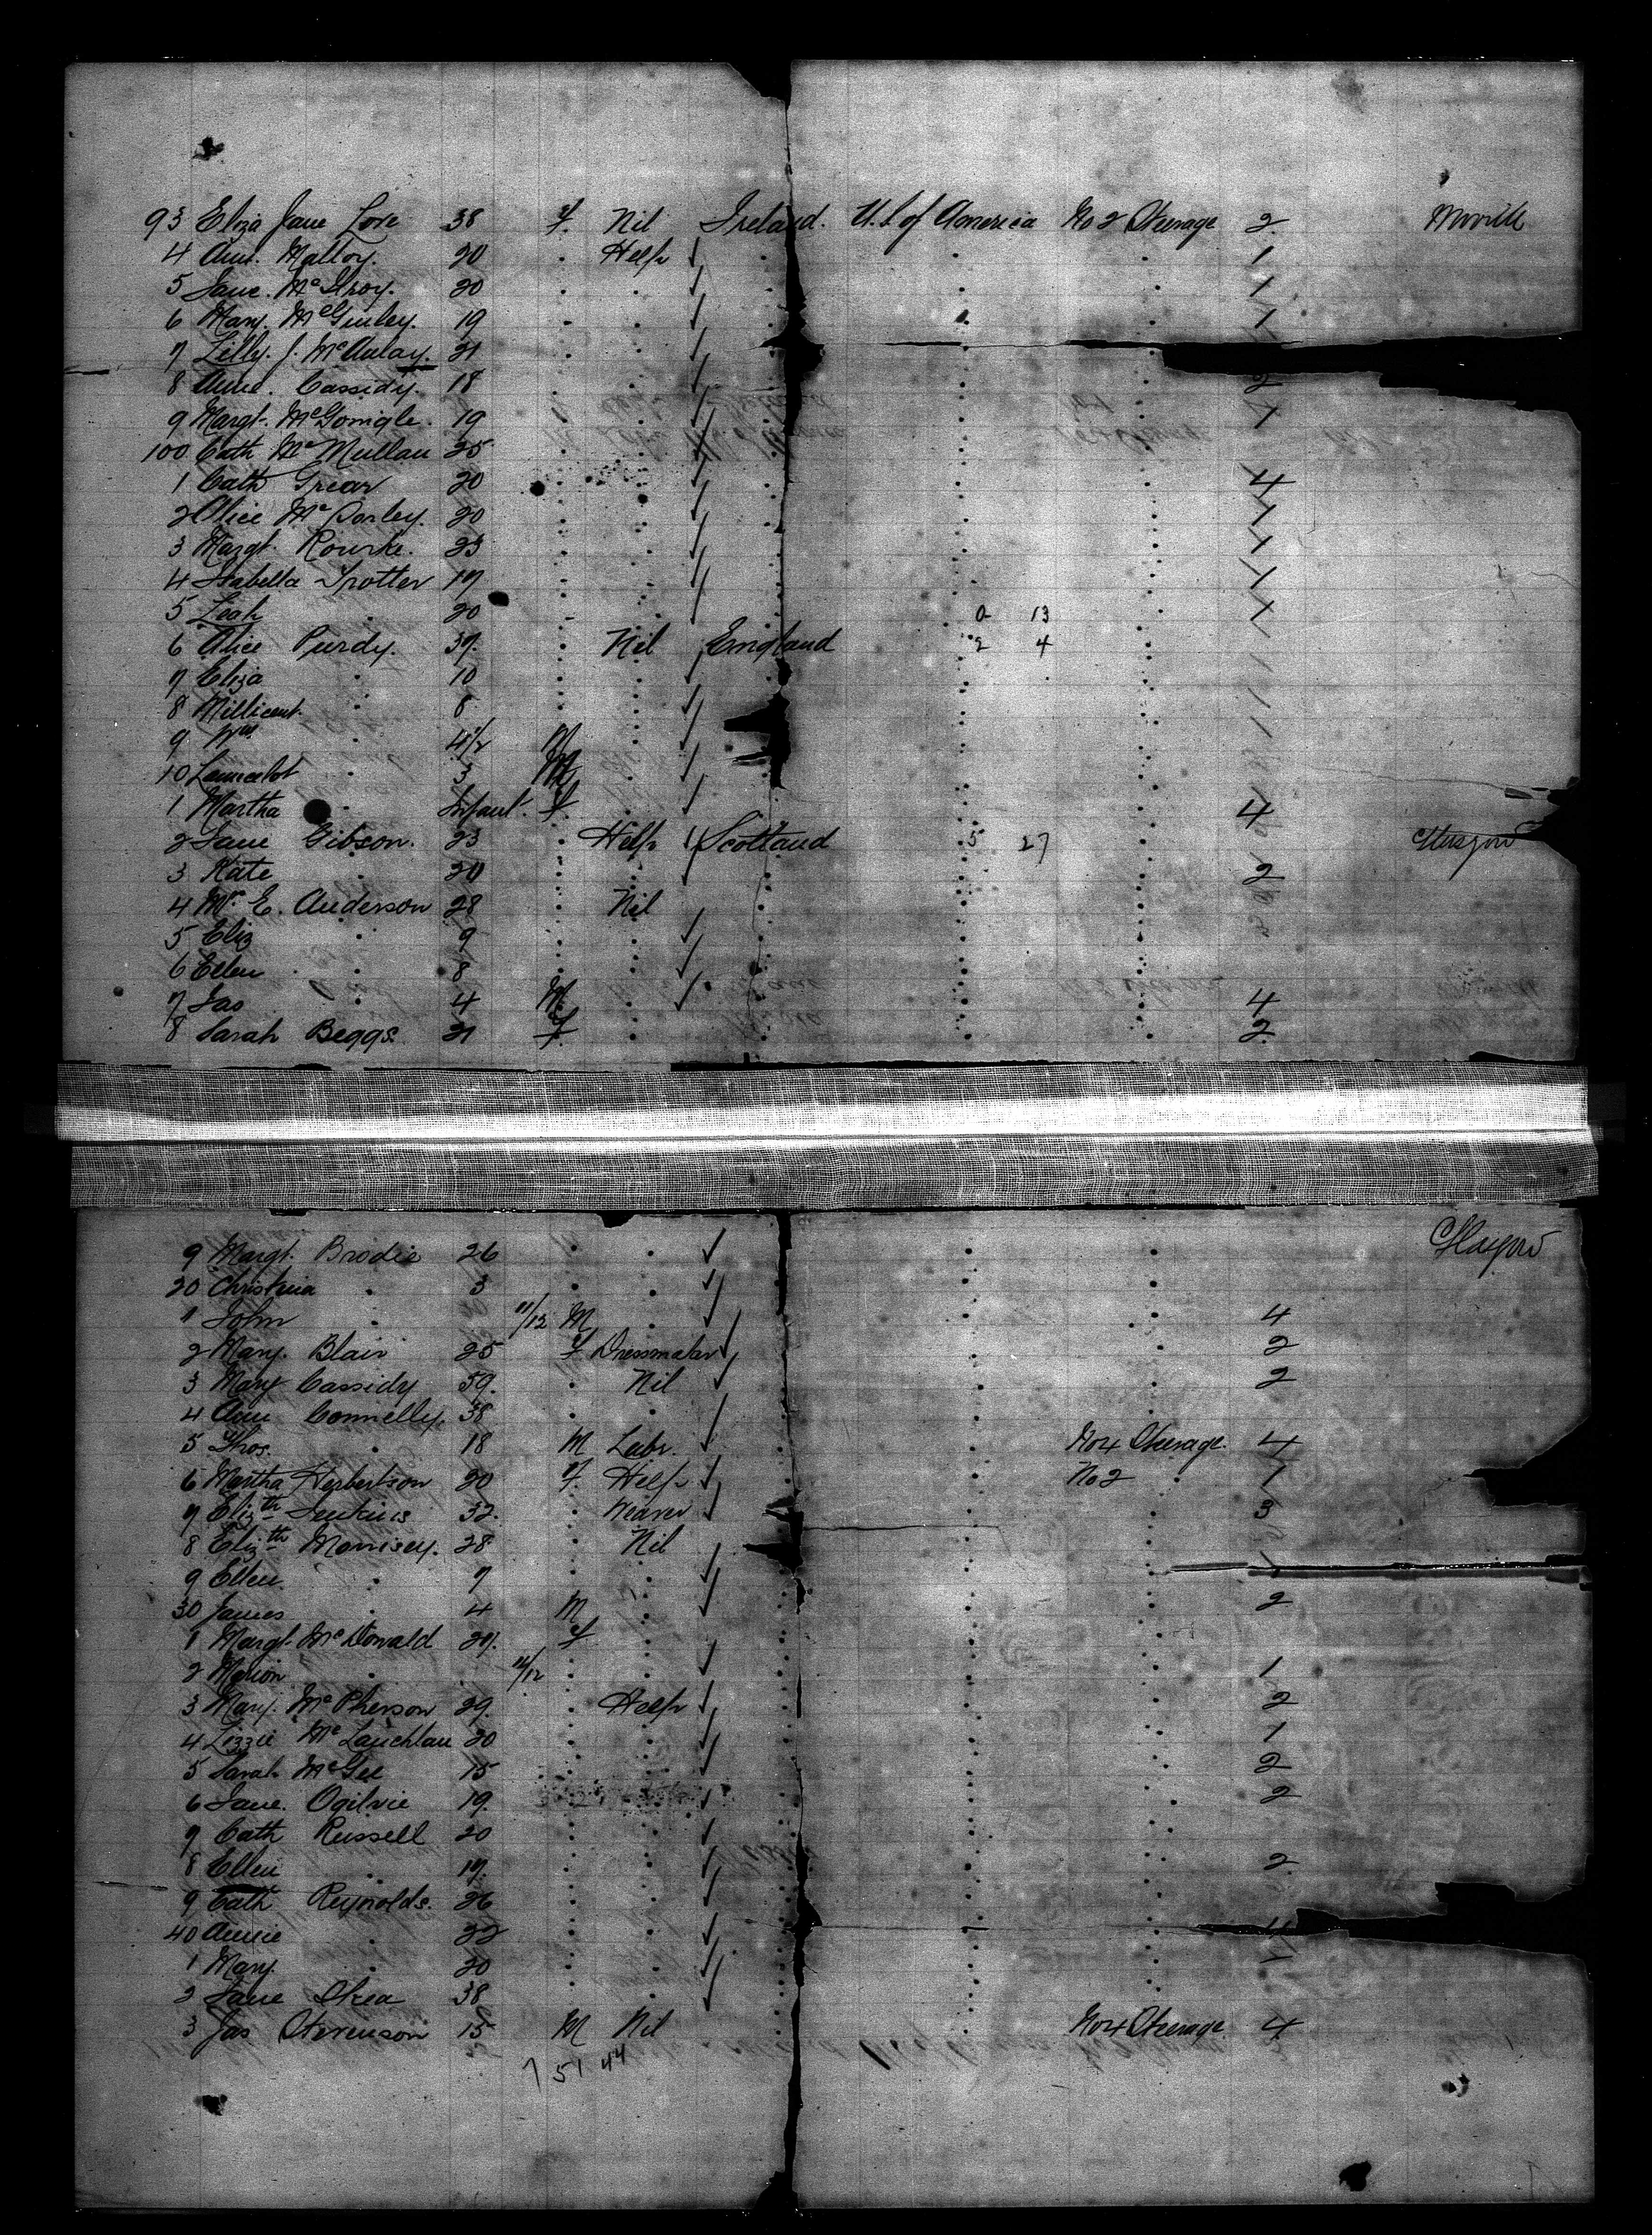 93 Eliza Jane Love 38 f. Nil Ireland. U.S of America No 2 Steerage 2. Moville
4 Ann. Malloy. 20 . Help . . . 1
5 Jane. McIlroy. 20 . . . . . 1
6 Mary. McGinley. 19 . . . . . 1
7 Lilly. J. McAulay. 21 . . . . .
8 Anne. Cassidy. 18 . . . . . 2
9 Margt. McGonigle. 19 . . . . . 1
100 Cath McMullan 25 . . . . .
1 Cath Grear 20 . . . . . 4
2 Alice McSorley. 20 . . . . . 1
3 Margt. Rourke. 23 . . . . . 1
4 Isabella Trotter 17 . . . . . 1
5 Leah . 20 . . . 0 13 . 1
6 Alice Purdy. 37. . Nil England 2 4 .
7 Eliza . 10 . . . . .
8 Millicent . 8 . . . . .
9 Wm . 4 1/2 M . . . .
10 Launcelot . 3 M . . . .
1 Martha . Infant. f. . . . . 4
2 Jane Gibson. 23 . Help Scotland 5 27 .
3 Kate . 20 . . . . . 2
4 Mrs E. Anderson 28 . Nil . . .
5 Eliz . 9 . . . . .
6 Ellen . 8 . . . . .
7 Jas . 4 M. . . . . 4
8 Sarah Beggs. 21 f. . . . . 2.
9 Margt. Brodie 26 . . . . Glasgow
20 Christina . 3 . . . .
1 John . 11/12 M . . . 4
2 Mary. Blair 25 f Dressmaker . . 2
3 Mary Cassidy 59. . Nil . . 2
4 Ann Connelly. 38 . . . .
5 Thos. . 18 M Labr. . No 4 Steerage. 4
6 Martha Herbertson 20 f. Help . No 2 . 1
7 Elizth Jenkins 32. . Weaver . . 3
8 Elizth Morrisey. 28 . Nil . .
9 Ellen. . 7 . . . .
30 James . 4 M . . . 2
1 Margt. McDonald 27. f . . .
2 Marion . 11/12 . . . . 1
3 Mary. McPherson 29. . Help . . 2
4 Lizzie McLauchlan 20 . . . . 1
5 Sarah McGee 15 . . . . 2
6 Jane. Ogilvie 19. . . . . 2
7 Cath Russell 20 . . . .
8 Ellen . 17. . . . . 2.
9 Cath Reynolds. 26 . . . .
40 Annie . 22 . . . .
1 Mary. . 20 . . . .
2 Jane Shea 38 . . . .
3 Jas Stevenson 15 M Nil . No 4 Steerage. 4
7 51 44